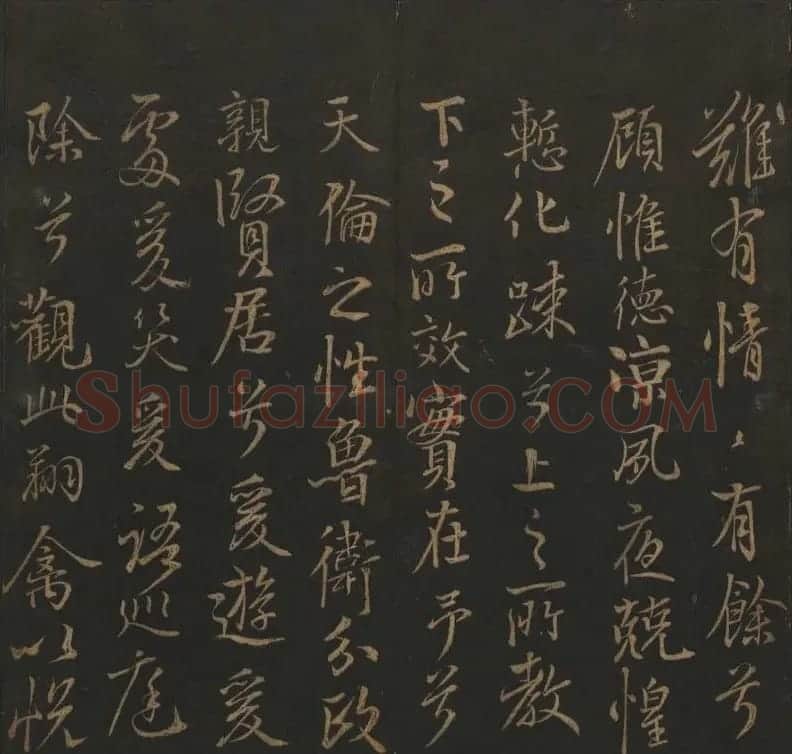 難有情々有餘兮
顧惟德涼夙夜兢惶
慙化踈兮上之所教
下之所效實在予兮
天倫之性魯衛分政
親賢居兮爰遊爰
處爰笑爰語巡庭
除兮觀此翔禽以悅
Shufaziliao.COM